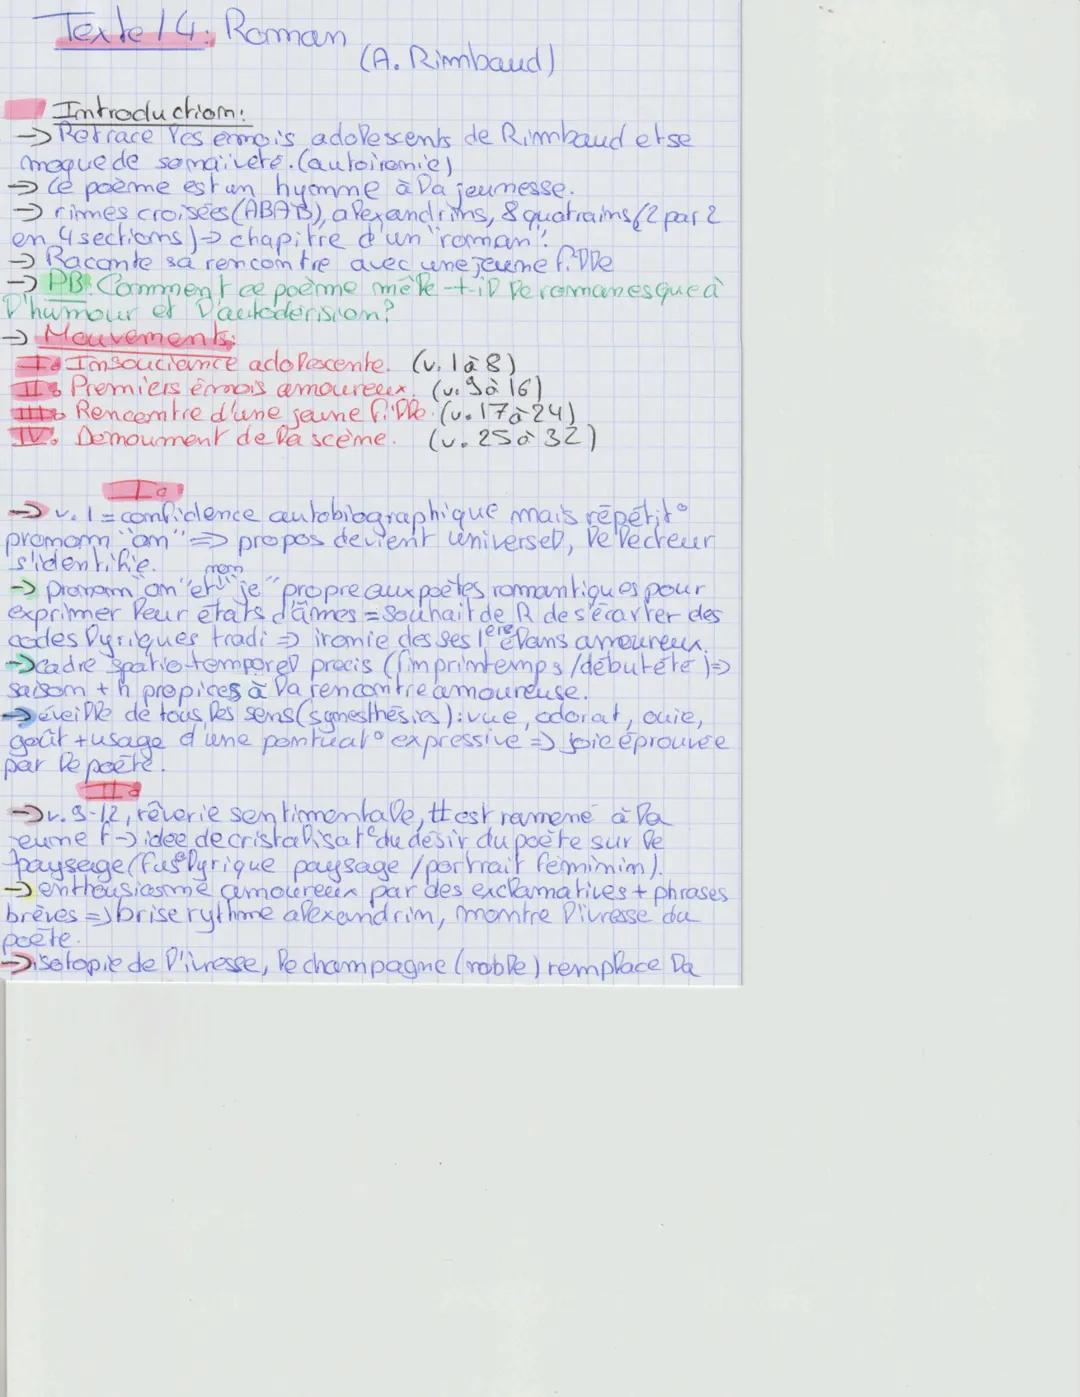 Texte 14: Roman
(A. Rimbaud)
Introduction:
-> Retrace les émois adolescents de Rimbaud et se
moque de sa naïveté. (autoironie)
-> Ce poème est un hymne à la jeunesse.
-> rimes croisées (ABAB), alexandrins, 8 quatrains (2 par 2
en 4 sections) => chapitre d'un "roman".
-> Raconte sa rencontre avec une jeune fille
-> PB: Comment ce poème mêle-t-il le romanesque à
l'humour et l'autodérision?
-> Mouvements:
I. Insouciance adolescente. (v. 1 à 8)
II. Premiers émois amoureux. (v. 9 à 16)
III. Rencontre d'une jeune fille. (v. 17 à 24)
IV. Denoument de la scène. (v. 25 à 32)
I.
-> v. 1 = confidence autobiographique mais répétit°
pronom "on" => propos devient universel, le lecteur
s'identifie.
-> pronom "on" et non "je" propre aux poètes romantiques pour
exprimer leur états d'âmes = souhait de R de s'écarter des
codes lyriques tradi => ironie des ses 1ers élans amoureux.
-> cadre spatio-temporel precis (fin printemps / début été) =>
saison + h propices à la rencontre amoureuse.
-> éveille de tous les sens (synesthésies): vue, odorat, ouie,
goût + usage d'une pontuat° expressive => joie éprouvée
par le poète.
II.
-> v. 9-12, rêverie sentimentale, tt est ramené à la
jeune f -> idée de cristalisat° du désir du poète sur le
paysage (fus° lyrique paysage / portrait féminin).
-> enthousiasme amoureux par des exclamatives + phrases
brèves => brise rythme alexandrin, montre l'ivresse du
poète.
-> isotopie de l'ivresse, le champagne (noble) remplace la